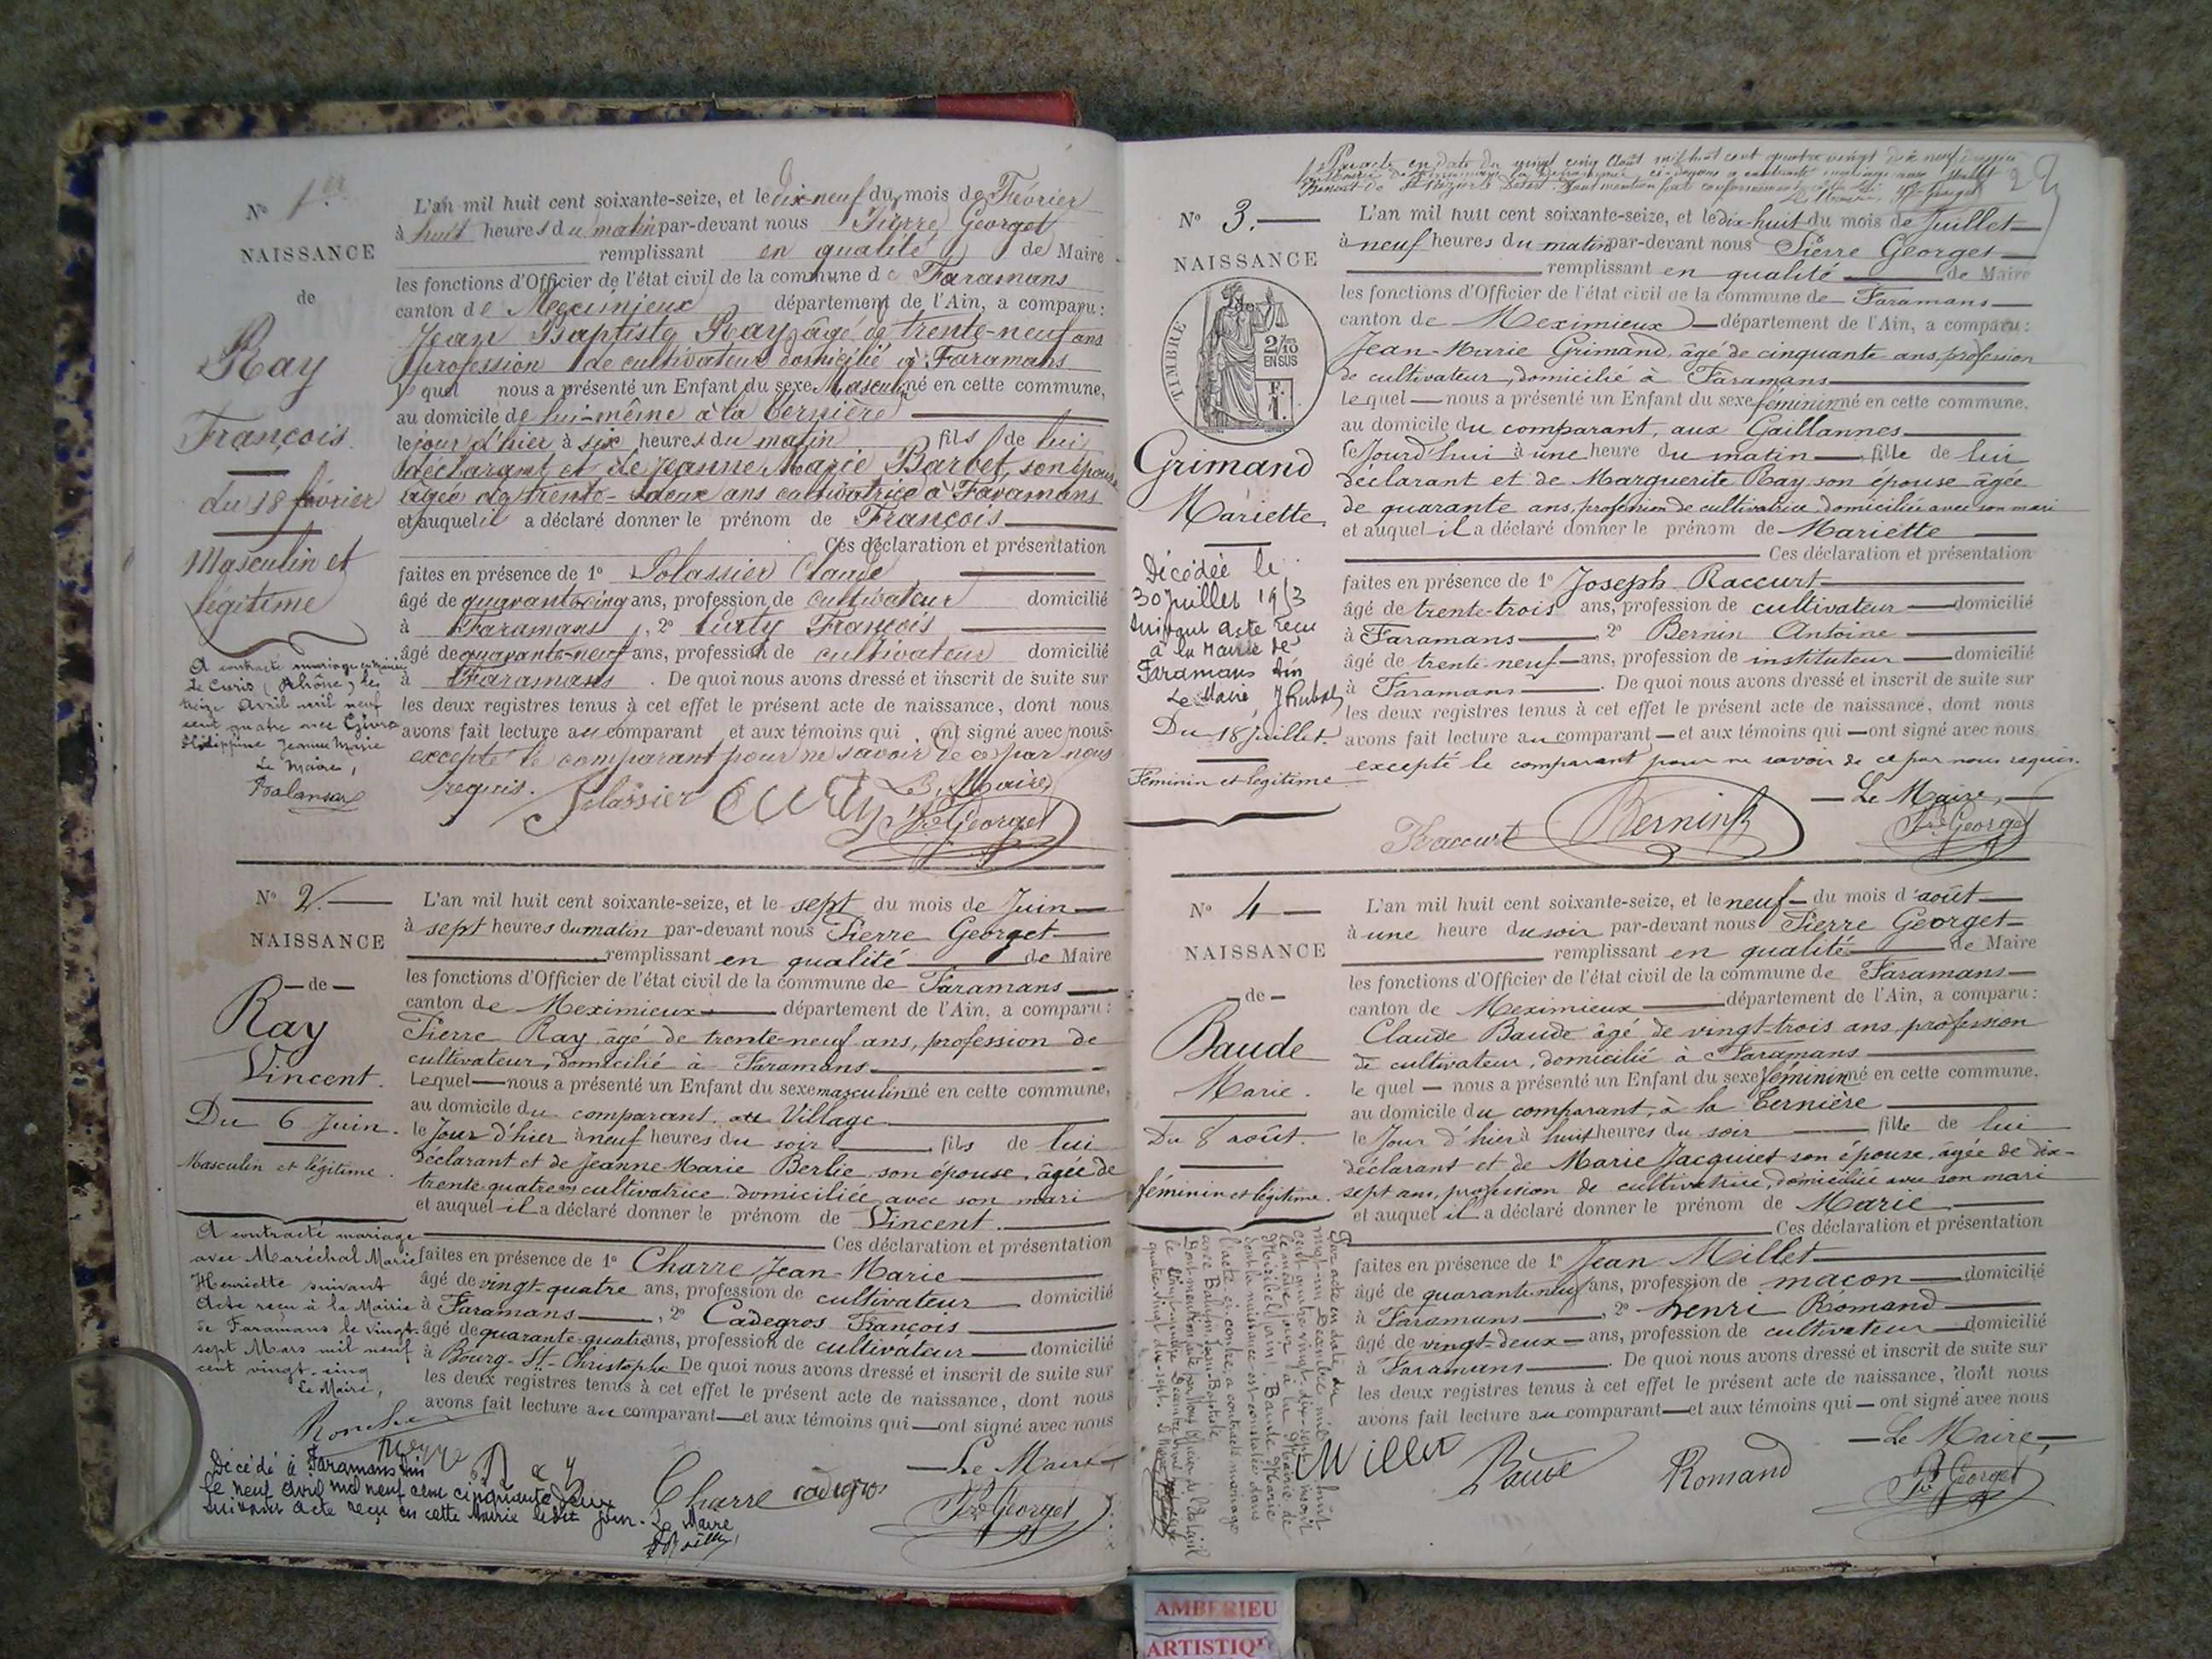 N° 1er
NAISSANCE
de
Ray
François
du 18 février
Masculin et
légitime
A contracté mariage en Mairie
de Curis (Rhône) le
treize Avril mil neuf
cent quatre avec
Philippine Jeanne Marie
Le Maire,
L'an mil huit cent soixante-seize, et le dix-neuf du mois de Février
à huit heures du matin par-devant nous Pierre Georget
remplissant en qualité de Maire
les fonctions d'Officier de l'état civil de la commune de Faramans
canton de Meximieux département de l'Ain, a comparu :
Jean Baptiste Ray, âgé de trente-neuf ans
profession de cultivateur domicilié à Faramans
le quel nous a présenté un Enfant du sexe Masculin né en cette commune,
au domicile de lui-même à la Bernière
le jour d'hier à six heures du matin fils de lui
déclarant et de Jeanne Marie Barbet, son épouse
âgée de trente-deux ans cultivatrice à Faramans
et auquel il a déclaré donner le prénom de François
Ces déclaration et présentation
faites en présence de 1° Solassier Claude
âgé de quarante-cinq ans, profession de cultivateur domicilié
à Faramans, 2° Curty François
âgé de quarante-neuf ans, profession de cultivateur domicilié
à Faramans. De quoi nous avons dressé et inscrit de suite sur
les deux registres tenus à cet effet le présent acte de naissance, dont nous
avons fait lecture au comparant et aux témoins qui ont signé avec nous
excepté le comparant pour ne savoir de ce par nous
requis. Le Maire
Solassier Curty Pre Georget
N° 2
NAISSANCE
de
Ray
Vincent.
Du 6 Juin.
Masculin et légitime.
A contracté mariage
avec Maréchal Marie
Henriette suivant
Acte reçu à la Mairie
de Faramans le vingt-
sept Mars mil neuf
cent vingt-cinq
Le Maire,
Décédé à Faramans Ain
le neuf avril mil neuf cent cinquante deux
suivant acte reçu en cette Mairie ledit jour. Le Maire
L'an mil huit cent soixante-seize, et le sept du mois de Juin
à sept heures du matin par-devant nous Pierre Georget
remplissant en qualité de Maire
les fonctions d'Officier de l'état civil de la commune de Faramans
canton de Meximieux département de l'Ain, a comparu :
Pierre Ray, âgé de trente-neuf ans, profession de
cultivateur, domicilié à Faramans
Lequel nous a présenté un Enfant du sexe masculin né en cette commune,
au domicile du comparant, au Village
le Jour d'hier à neuf heures du soir fils de lui
déclarant et de Jeanne Marie Berlie son épouse, âgée de
trente quatre ans cultivatrice domiciliée avec son mari
et auquel il a déclaré donner le prénom de Vincent.
Ces déclaration et présentation
faites en présence de 1° Charre Jean-Marie
âgé de vingt-quatre ans, profession de cultivateur domicilié
à Faramans, 2° Cadegros François
âgé de quarante-quatre ans, profession de cultivateur domicilié
à Bourg-St-Christophe De quoi nous avons dressé et inscrit de suite sur
les deux registres tenus à cet effet le présent acte de naissance, dont nous
avons fait lecture au comparant et aux témoins qui ont signé avec nous
Le Maire
Ray Charre cadegros Pre Georget
Par acte en date du vingt cinq Août mil huit cent quatre vingt dix neuf
N° 3.
NAISSANCE
TIMBRE
2/10
EN SUS
Grimand
Mariette.
Décédée le
30 juillet 1953
suivant acte reçu
à la Mairie de
Faramans Ain
Le Maire,
Du 18 Juillet.
Féminin et légitime
L'an mil huit cent soixante-seize, et le dix-huit du mois de Juillet
à neuf heures du matin par-devant nous Pierre Georges
remplissant en qualité de Maire
les fonctions d'Officier de l'état civil de la commune de Faramans
canton de Meximieux département de l'Ain, a comparu :
Jean-Marie Grimand, âgé de cinquante ans, profession
de cultivateur, domicilié à Faramans
Lequel nous a présenté un Enfant du sexe féminin né en cette commune.
au domicile du comparant, aux Gaillannes
le Jourd'hui à une heure du matin, fille de lui
déclarant et de Marguerite Ray son épouse âgée
de quarante ans, profession de cultivatrice, domiciliée avec son mari
et auquel il a déclaré donner le prénom de Mariette
Ces déclaration et présentation
faites en présence de 1° Joseph Raccurt
âgé de trente-trois ans, profession de cultivateur domicilié
à Faramans, 2° Bernin Antoine
âgé de trente-neuf ans, profession de instituteur domicilié
à Faramans. De quoi nous avons dressé et inscrit de suite sur
les deux registres tenus à cet effet le présent acte de naissance, dont nous
avons fait lecture au comparant et aux témoins qui ont signé avec nous
excepté le comparant pour ne savoir de ce par nous requis.
Le Maire,
Raccurt Bernin Pre Georget
N° 4
NAISSANCE
de
Baude
Marie.
Du 8 août.
féminin et légitime.
L'an mil huit cent soixante-seize, et le neuf du mois d'août
à une heure du soir par-devant nous Pierre Georget
remplissant en qualité de Maire
les fonctions d'Officier de l'état civil de la commune de Faramans
canton de Meximieux département de l'Ain, a comparu :
Claude Baude âgé de vingt-trois ans, profession
de cultivateur, domicilié à Faramans
le quel nous a présenté un Enfant du sexe féminin né en cette commune.
au domicile du comparant, à la Bernière
le Jour d'hier à huit heures du soir fille de lui
déclarant et de Marie Jacquiet son épouse, âgée de dix-
sept ans, profession de cultivatrice, domiciliée avec son mari
et auquel il a déclaré donner le prénom de Marie
Ces déclaration et présentation
faites en présence de 1° Jean Millet
âgé de quarante-neuf ans, profession de maçon domicilié
à Faramans, 2° henri Romand
âgé de vingt-deux ans, profession de cultivateur domicilié
à Faramans. De quoi nous avons dressé et inscrit de suite sur
les deux registres tenus à cet effet le présent acte de naissance, dont nous
avons fait lecture au comparant et aux témoins qui ont signé avec nous
Le Maire,
Millet Baude Romand Pre Georget
Par acte en date du
vingt-un Décembre mil huit
cent quatre vingt-dix-sept
AMBERIEU
ARTISTIQU